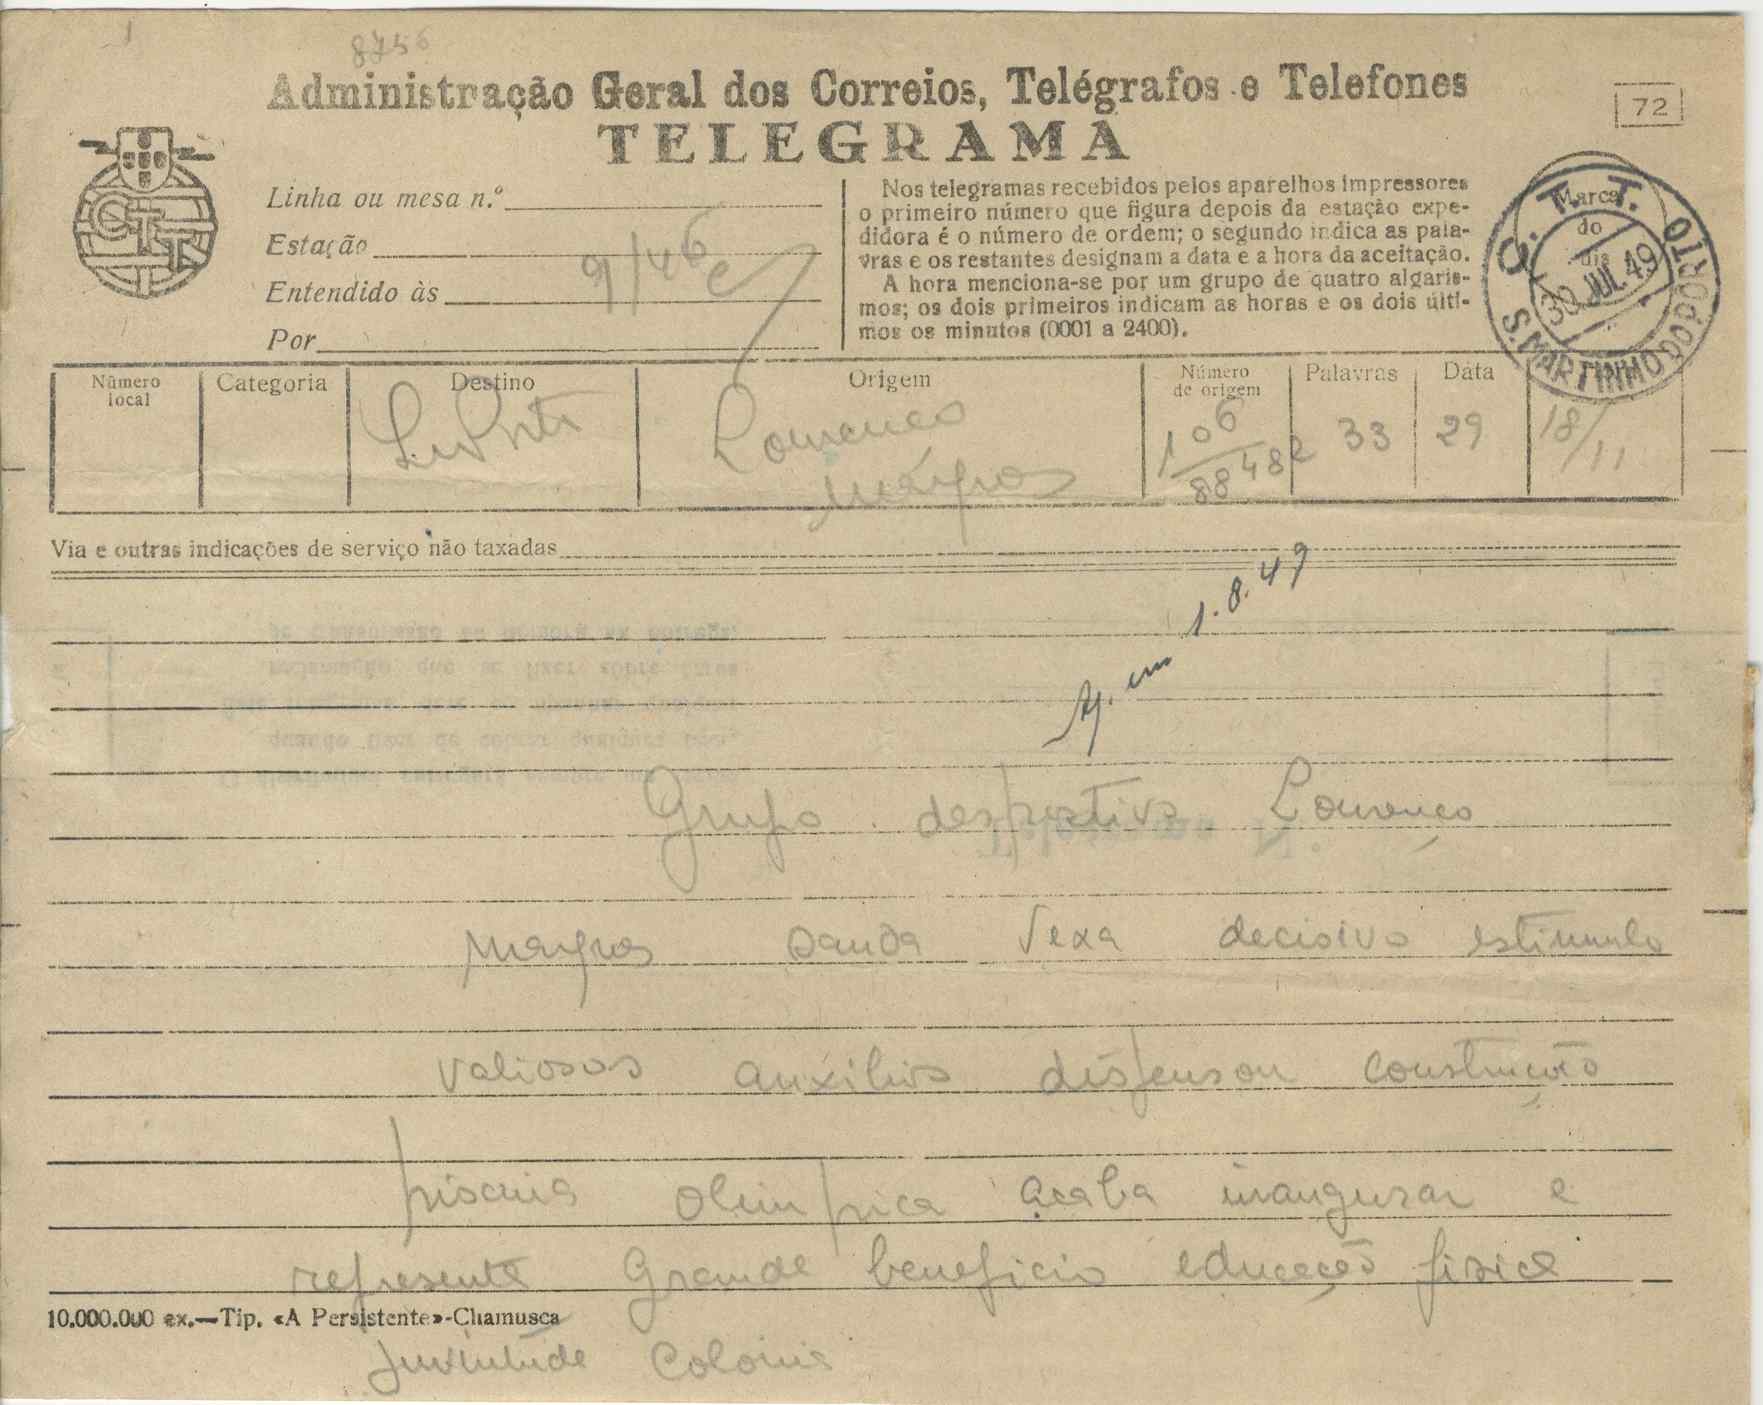 1
8756
Administração Geral dos Correios, Telégrafos e Telefones
72
TELEGRAMA
CTT
Linha ou mesa n.º
Estação
Entendido às 9/46
Por
Nos telegramas recebidos pelos aparelhos impressores
o primeiro número que figura depois da estação expe-
didora é o número de ordem; o segundo indica as pala-
vras e os restantes designam a data e a hora da aceitação.
A hora menciona-se por um grupo de quatro algaris-
mos; os dois primeiros indicam as horas e os dois últi-
mos os minutos (0001 a 2400).
Marca
do
dia
C. T. T.
30 JUL. 49
S. MARTINHO DO PORTO
Número
local
Categoria
Destino
Origem
Número
de origem
Palavras
Data
Lourenço
Marques
106
88482
33
29
18/11
Via e outras indicações de serviço não taxadas
em 1.8.49
Grupo desportivo Lourenço
Marques sauda Vexa decisivo estimulo
valiosos auxilios dispensou construção
piscina olimpica acaba inaugurar e
representa grande beneficio educação fisica
10.000.000 ex.—Tip. «A Persistente»-Chamusca
juventude Colonia